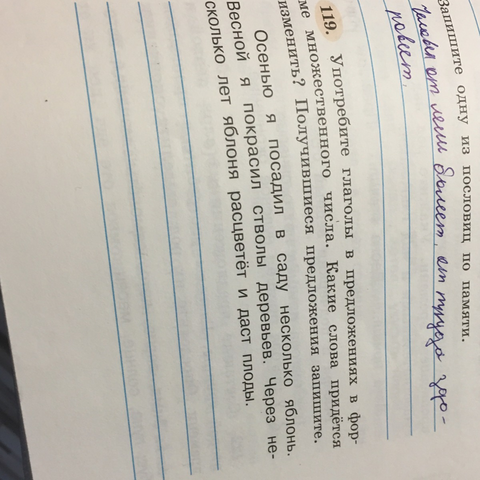 Запишите одну из пословиц по памяти.
Человек от лени болеет, от труда здо-
ровеет.
119. Употребите глаголы в предложениях в фор-
ме множественного числа. Какие слова придётся
изменить? Получившиеся предложения запишите.
Осенью я посадил в саду несколько яблонь.
Весной я покрасил стволы деревьев. Через не-
сколько лет яблоня расцветёт и даст плоды.